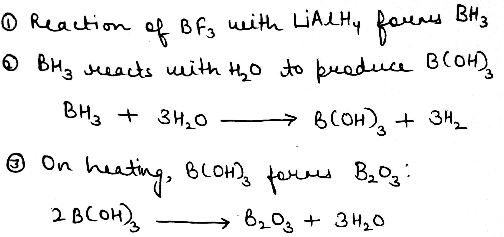 ① Reaction of BF₃ with LiAlH₄ forms BH₃
② BH₃ reacts with H₂O to produce B(OH)₃
BH₃ + 3H₂O ⟶ B(OH)₃ + 3H₂
③ On heating, B(OH)₃ forms B₂O₃:
2 B(OH)₃ ⟶ B₂O₃ + 3H₂O